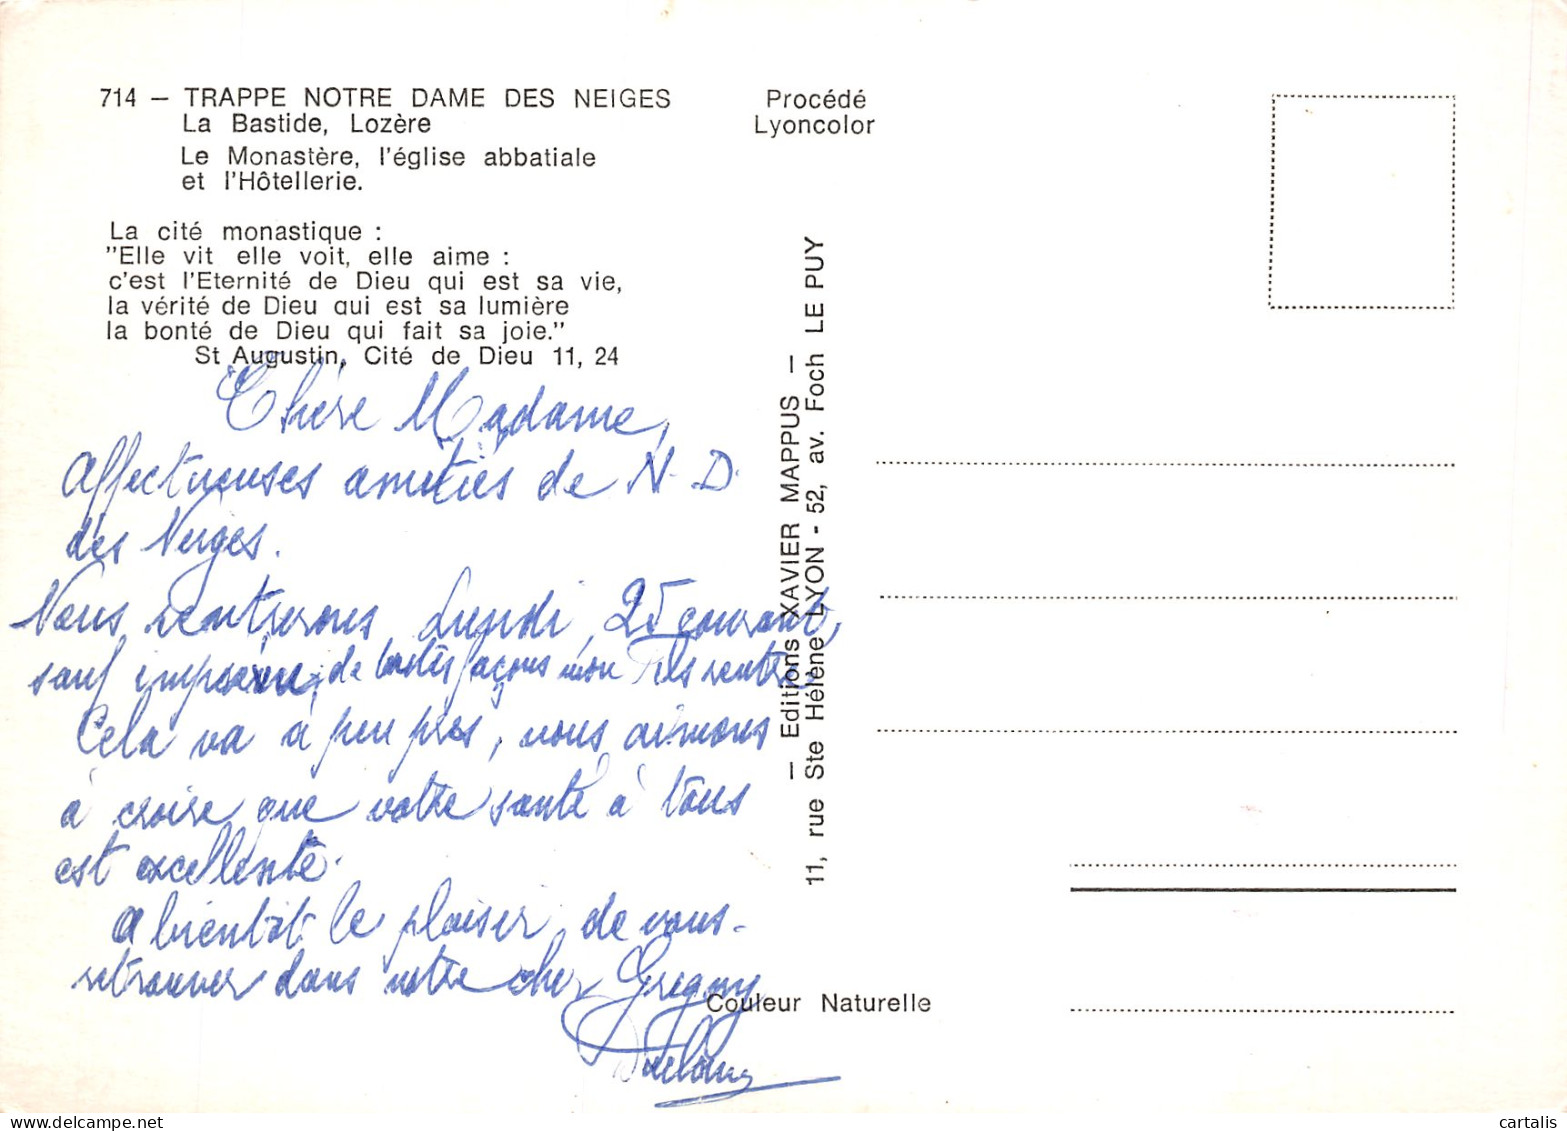 714 — TRAPPE NOTRE DAME DES NEIGES
La Bastide, Lozère
Le Monastère, l'église abbatiale
et l'Hôtellerie.
La cité monastique :
"Elle vit elle voit, elle aime :
c'est l'Eternité de Dieu qui est sa vie,
la vérité de Dieu qui est sa lumière
la bonté de Dieu qui fait sa joie."
St Augustin, Cité de Dieu 11, 24
Chère Madame,
Affectueuses amitiés de N. D.
des Neiges.
Nous rentrerons Lundi 25 courant,
sauf imprévu, de toutes façons mon fils rentre
Cela va à peu près, nous aimons
à croire que votre santé à tous
est excellente.
A bientôt le plaisir de vous
retrouver dans notre cher Gregny
Procédé
Lyoncolor
— Editions XAVIER MAPPUS —
11, rue Ste Hélène LYON - 52, av. Foch LE PUY
Couleur Naturelle
cartalis